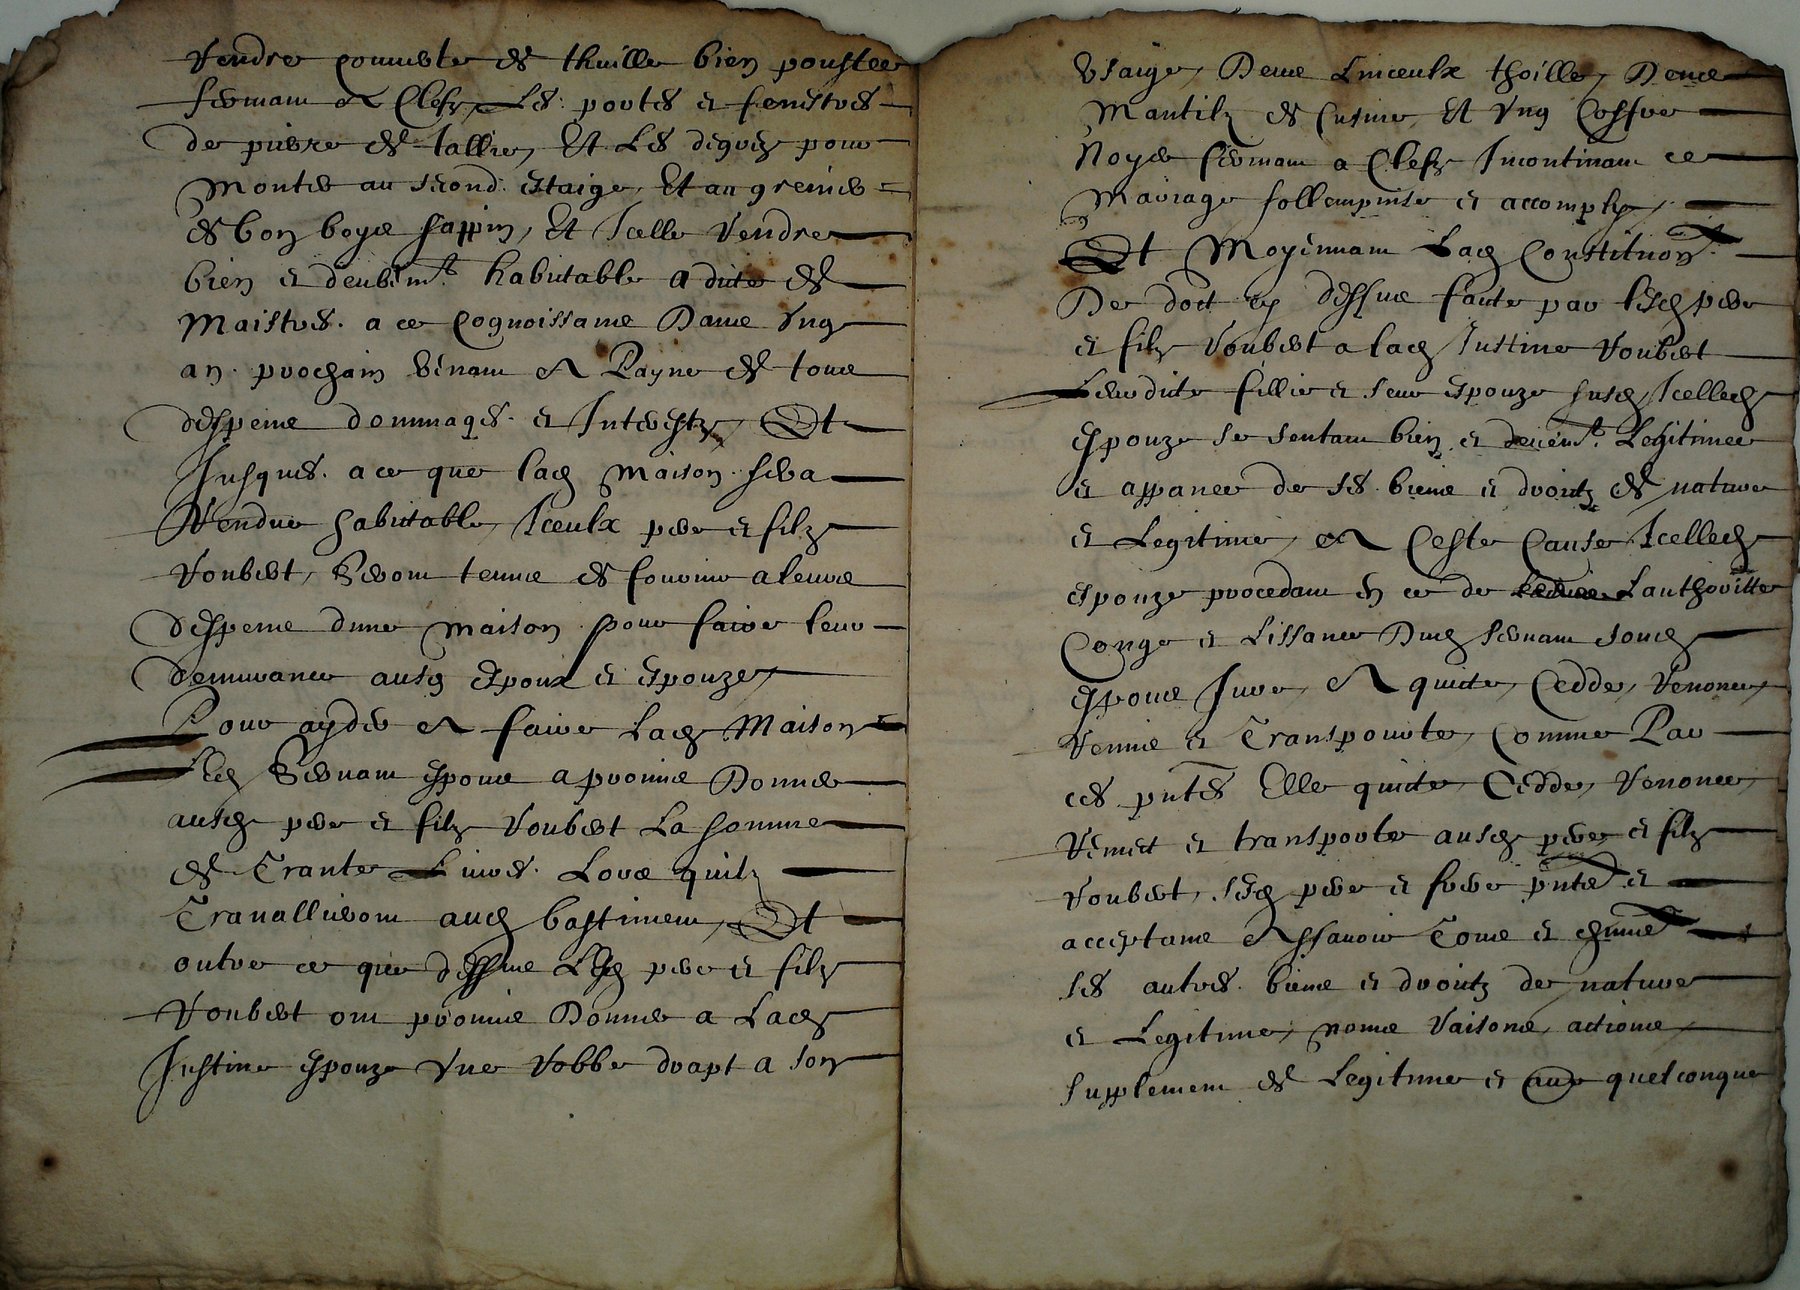 Rendre couverte de thuille bien poustee
fermant a Clefz, Les portes et fenestres
de pierre de tallie, Et Les degrez pour
Monter au second estaige, Et au grenier
de bon boys sappin, Et Icelle Rendre
bien et deubemt habitable a dicte de
Maistres. a ce Cognoissans Dans Ung
an prochain Venant A Payne de tous
despens dommages et Interestz, Et
Jusques a ce que lad Maison sera
Rendue habitable, Iceulx pere et filz
Roubert, Seront tenus de fournir a leurs
despens dune maison pour faire leur
demeurance ausd Espoux et espouze,
Pour ayder A faire Lad Maison
Led Servant Espoux a promis Donner
ausd pere et filz Roubert La somme
de Trante Livres. Lors quilz
Travallieront aud bastiment, Et
outre ce que dessus Lesd pere et filz
Roubert ont promis Donner a Lad
Justine espouze Une Robbe drapt a son
Usaige, Deux Linceulx thoille, Deux
Mantilz de Cusine, Et Ung Coffre
Noyer fermant a Clefz Incontinant ce
Mariage sollempnise et accomply,
Et Moyennant Lad Constituon
De dot cy dessus faicte par lesd pere
et filz Roubert a lad Justine Roubert
Leurdite fillie et seur espouze susd, Icelled
espouze se sentant bien et deuemt Legitimee
et appanee de ses biens et droitz de nature
et Legitime, A Ceste Cause Icelled
espouze procedant en ce de Lauthoritte
Conge et Lissance Dud servant sond
espoux Jure, A quicte, Cedde, Renonce,
Remis et Transpourte, Comme Par
ces pntes Elle quicte, Cedde, Renonce,
Remect et transporte ausd pere et filz
Roubert, sesd pere et frere pntz et
acceptans Assavoir Tous et chunes
ses autres biens et droitz de nature
et Legitime, noms Raisons, actions,
supplement de Legitime et aue quelconque